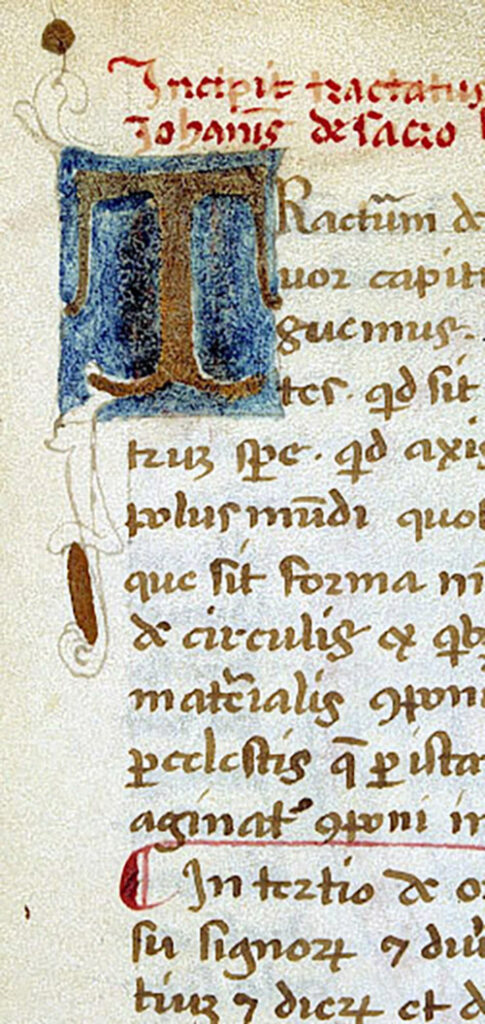 Incipit tractatus
Johanis̄ de sacro
TRactūm de
uor capit
guemus.
tes. qd sit
truꝫ sp̄e. qd axis
polus mūdi quot
que sit forma
de circulis ex qb
mat̄ialis ꝯponi
ꝑcelestis q̄ ꝑ ista
aginat᷒ ꝯponi in
In tertio de o
su signoꝝ ⁊ diu
tiuꝫ ⁊ dieꝝ et d